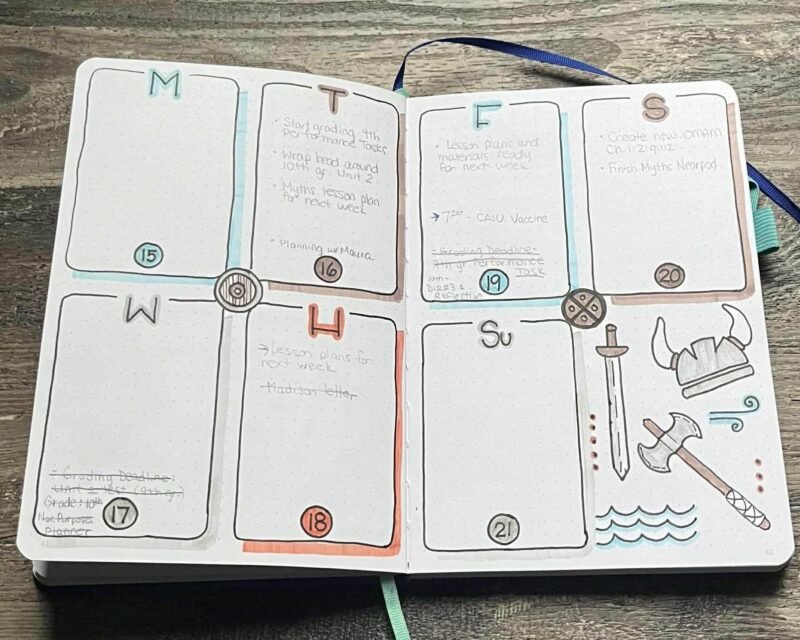 M
15
T
• Start grading 9th
performance Tasks
• Wrap head around
10th gr. Unit 2
• Myths lesson plan
for next week
• Planning w/ Maura
16
W
- Grading Deadline:
Unit 2 test (9th gr.)
Grade: 10th
Non Purposes
Planner
17
H
→ Lesson plans for
next week
- Madison letter
18
F
• Lesson plans and
materials ready
for next week
→ 7:20 - CAIU Vaccine
- Grading Deadline -
9th gr. Performance
Task
10th -
Disc #3 &
Reflection
19
S
• Create new OMAM
Ch. 1-2
• Finish Myths Nearpod
20
Su
21
62